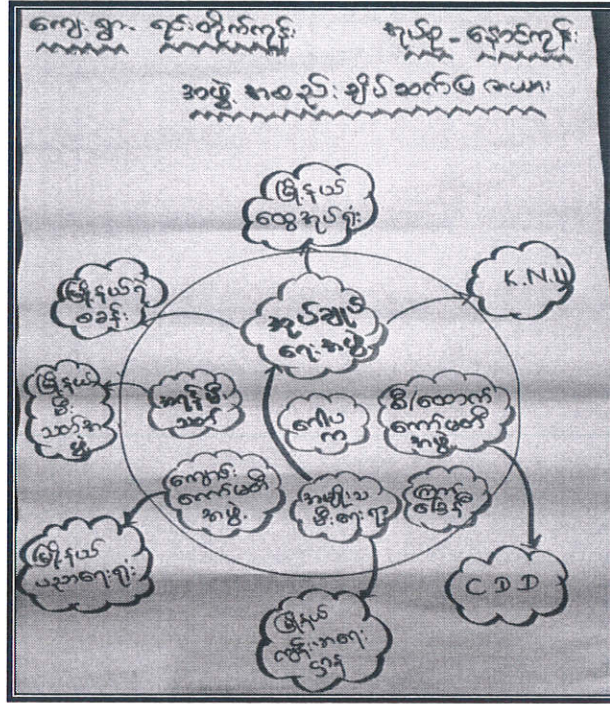 ကျေးရွာ - ရင်းတိုက်ကုန်း ရပ်စု - နောင်ကုန်း
အဖွဲ့အစည်းချိတ်ဆက်မြ ဇယား
မြို့နယ်
ထွေအုပ်ရုံး
K.N.U
မြို့နယ်ရဲ
စခန်း
အုပ်ချုပ်
ရေးအဖွဲ့
မြို့နယ်
မီး
သတ်အ
ဖွဲ့
အရန်မီး
သတ်
ဂေါပ
က
စီ/ထောက်
ကော်မတီ
အဖွဲ့
ကျောင်း
ကော်မတီ
အဖွဲ့
အမျိုးသ
မီးရေးရာ
ကြက်
ခြေနီ
မြို့နယ်
ပညာရေးရုံး
CDD
မြို့နယ်